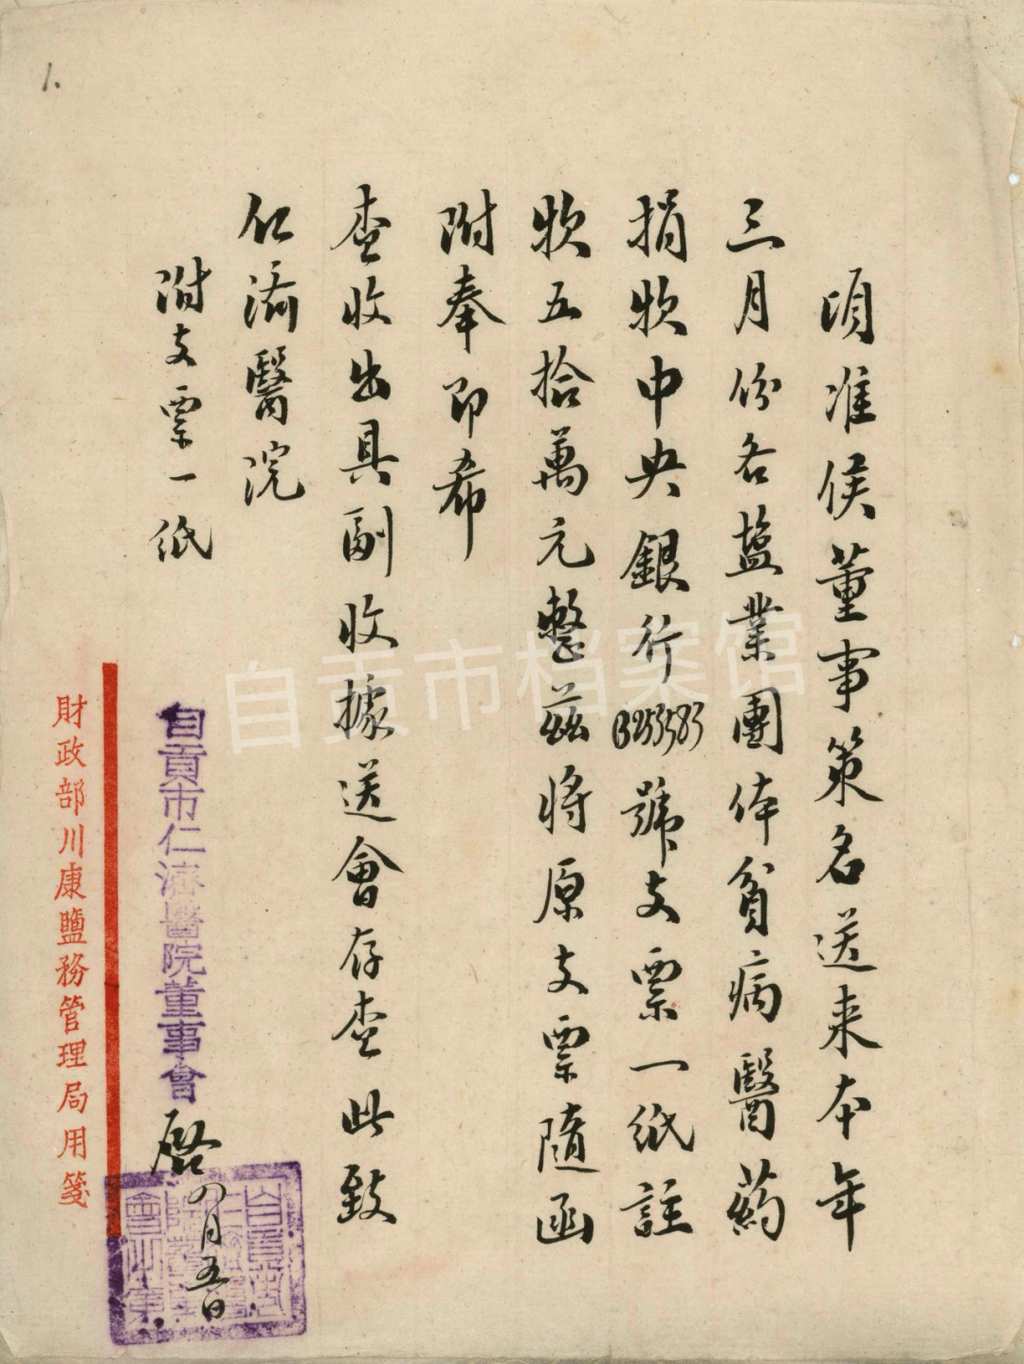 1.
頃准侯董事策名送来本年
三月份各盐業團体貧病醫药
捐欵中央銀行B253583號支票一紙註
欵五拾萬元整茲将原支票隨函
附奉即希
查收出具副收據送會存查此致
仁济醫院
附支票一紙
自貢市仁濟醫院董事會 啟 四月五日
財政部川康鹽務管理局用箋
自贡市档案馆